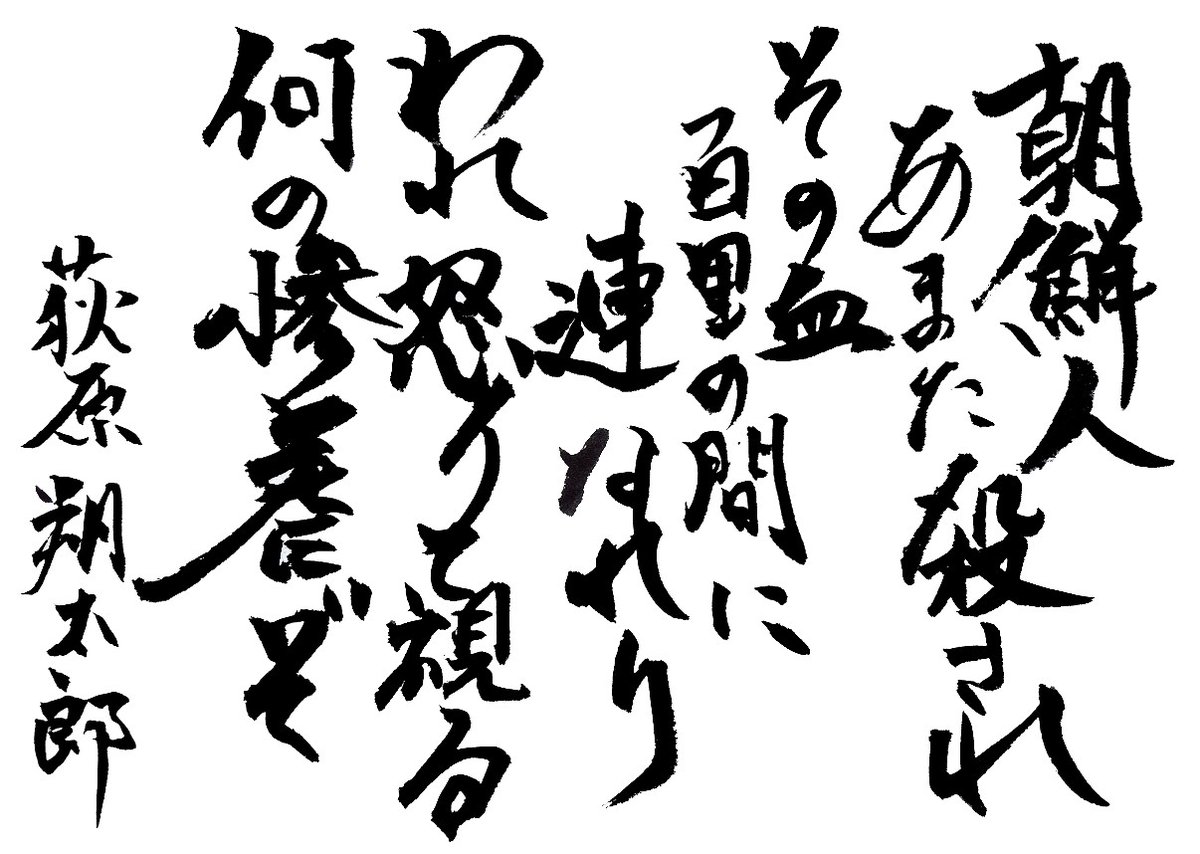 朝鮮人
あまた殺され
その血
百里の間に
連なれり
われ怒りて視る
何の惨虐ぞ
萩原朔太郎